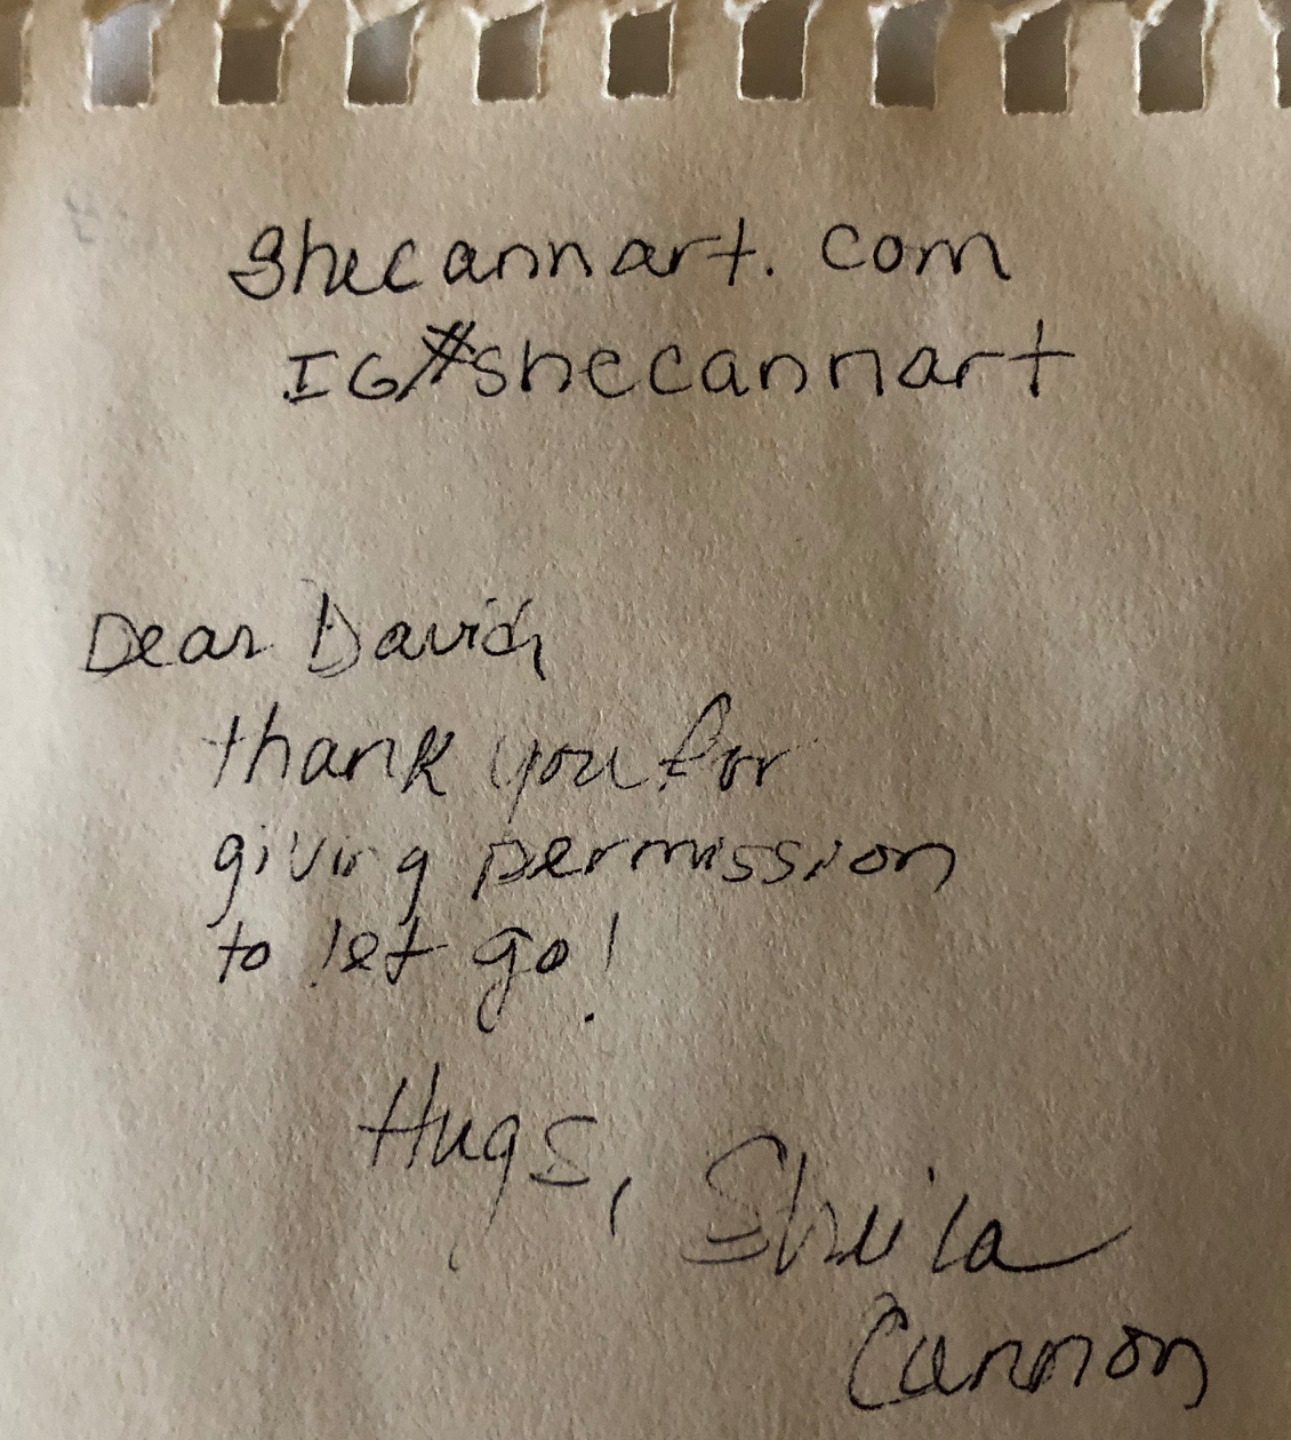 shecannart.com
IG#shecannart
Dear David,
thank you for
giving permission
to let go!
Hugs, Sheila
Cannon